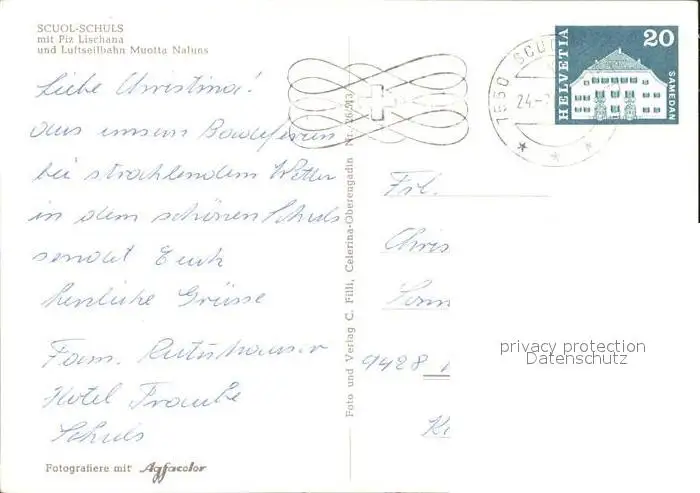 SCUOL-SCHULS
mit Piz Lischana
und Luftseilbahn Muotta Naluns
Liebe Christina!
Aus unsern Badeferien
bei strahlendem Wetter
in dem schönen Schuls
sendet Euch
herzliche Grüsse
Fam. Rutishauser
Hotel Traube
Schuls
Fotografiere mit Agfacolor
Foto und Verlag C. Filli, Celerina-Oberengadin
HELVETIA
20
SAMEDAN
1550 SCUO
24-
Frl.
Chris
Sonn
9428
privacy protection
Datenschutz